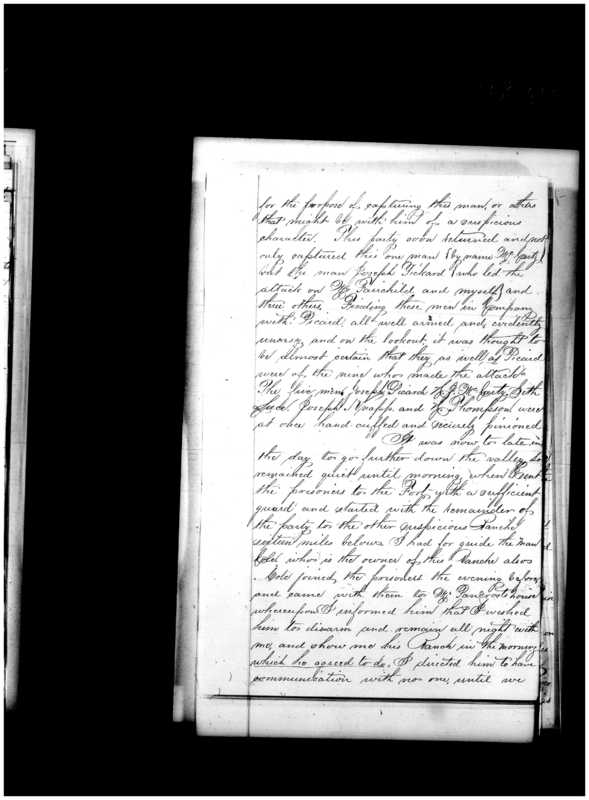 for the propose of capturing this man, or others
that might be with him of a suspicious
character. This party soon returned and not
only captured this one man (by name Mc Carty)
but the man Joseph Pickard (who led the
attack on Mr Fairchild, and myself) and
three others, Finding these men in Company
with Picard, all well armed and, evidently
uneasy, and on the lookout, it was thought to
be almost certain that they, as well as Picard
were of the nine who made the attack
The five men, Joseph Picard Mc Carty, Seth
Luce. Joseph Knapp, and Thompson were
at once hand cuffed and securely pinioned
It was now, to late in
the day to go further down the valley, so
remained quiet until morning, when I sent
the prisoners to the Fort, with a sufficient
guard and started with the remainder of
the party, to the other suspecious Ranche
sixteen miles below. I had for guide the man
Cole who is the owner of this Ranche also
Cole joined, the prisoners the evening before
and came with them to Mr house
whereupon I informed him that I wished
him to disarm and remain all night with
me, and show me his Ranch in the morning
which he agreed to do. I directed him to have
communication with no one, until we